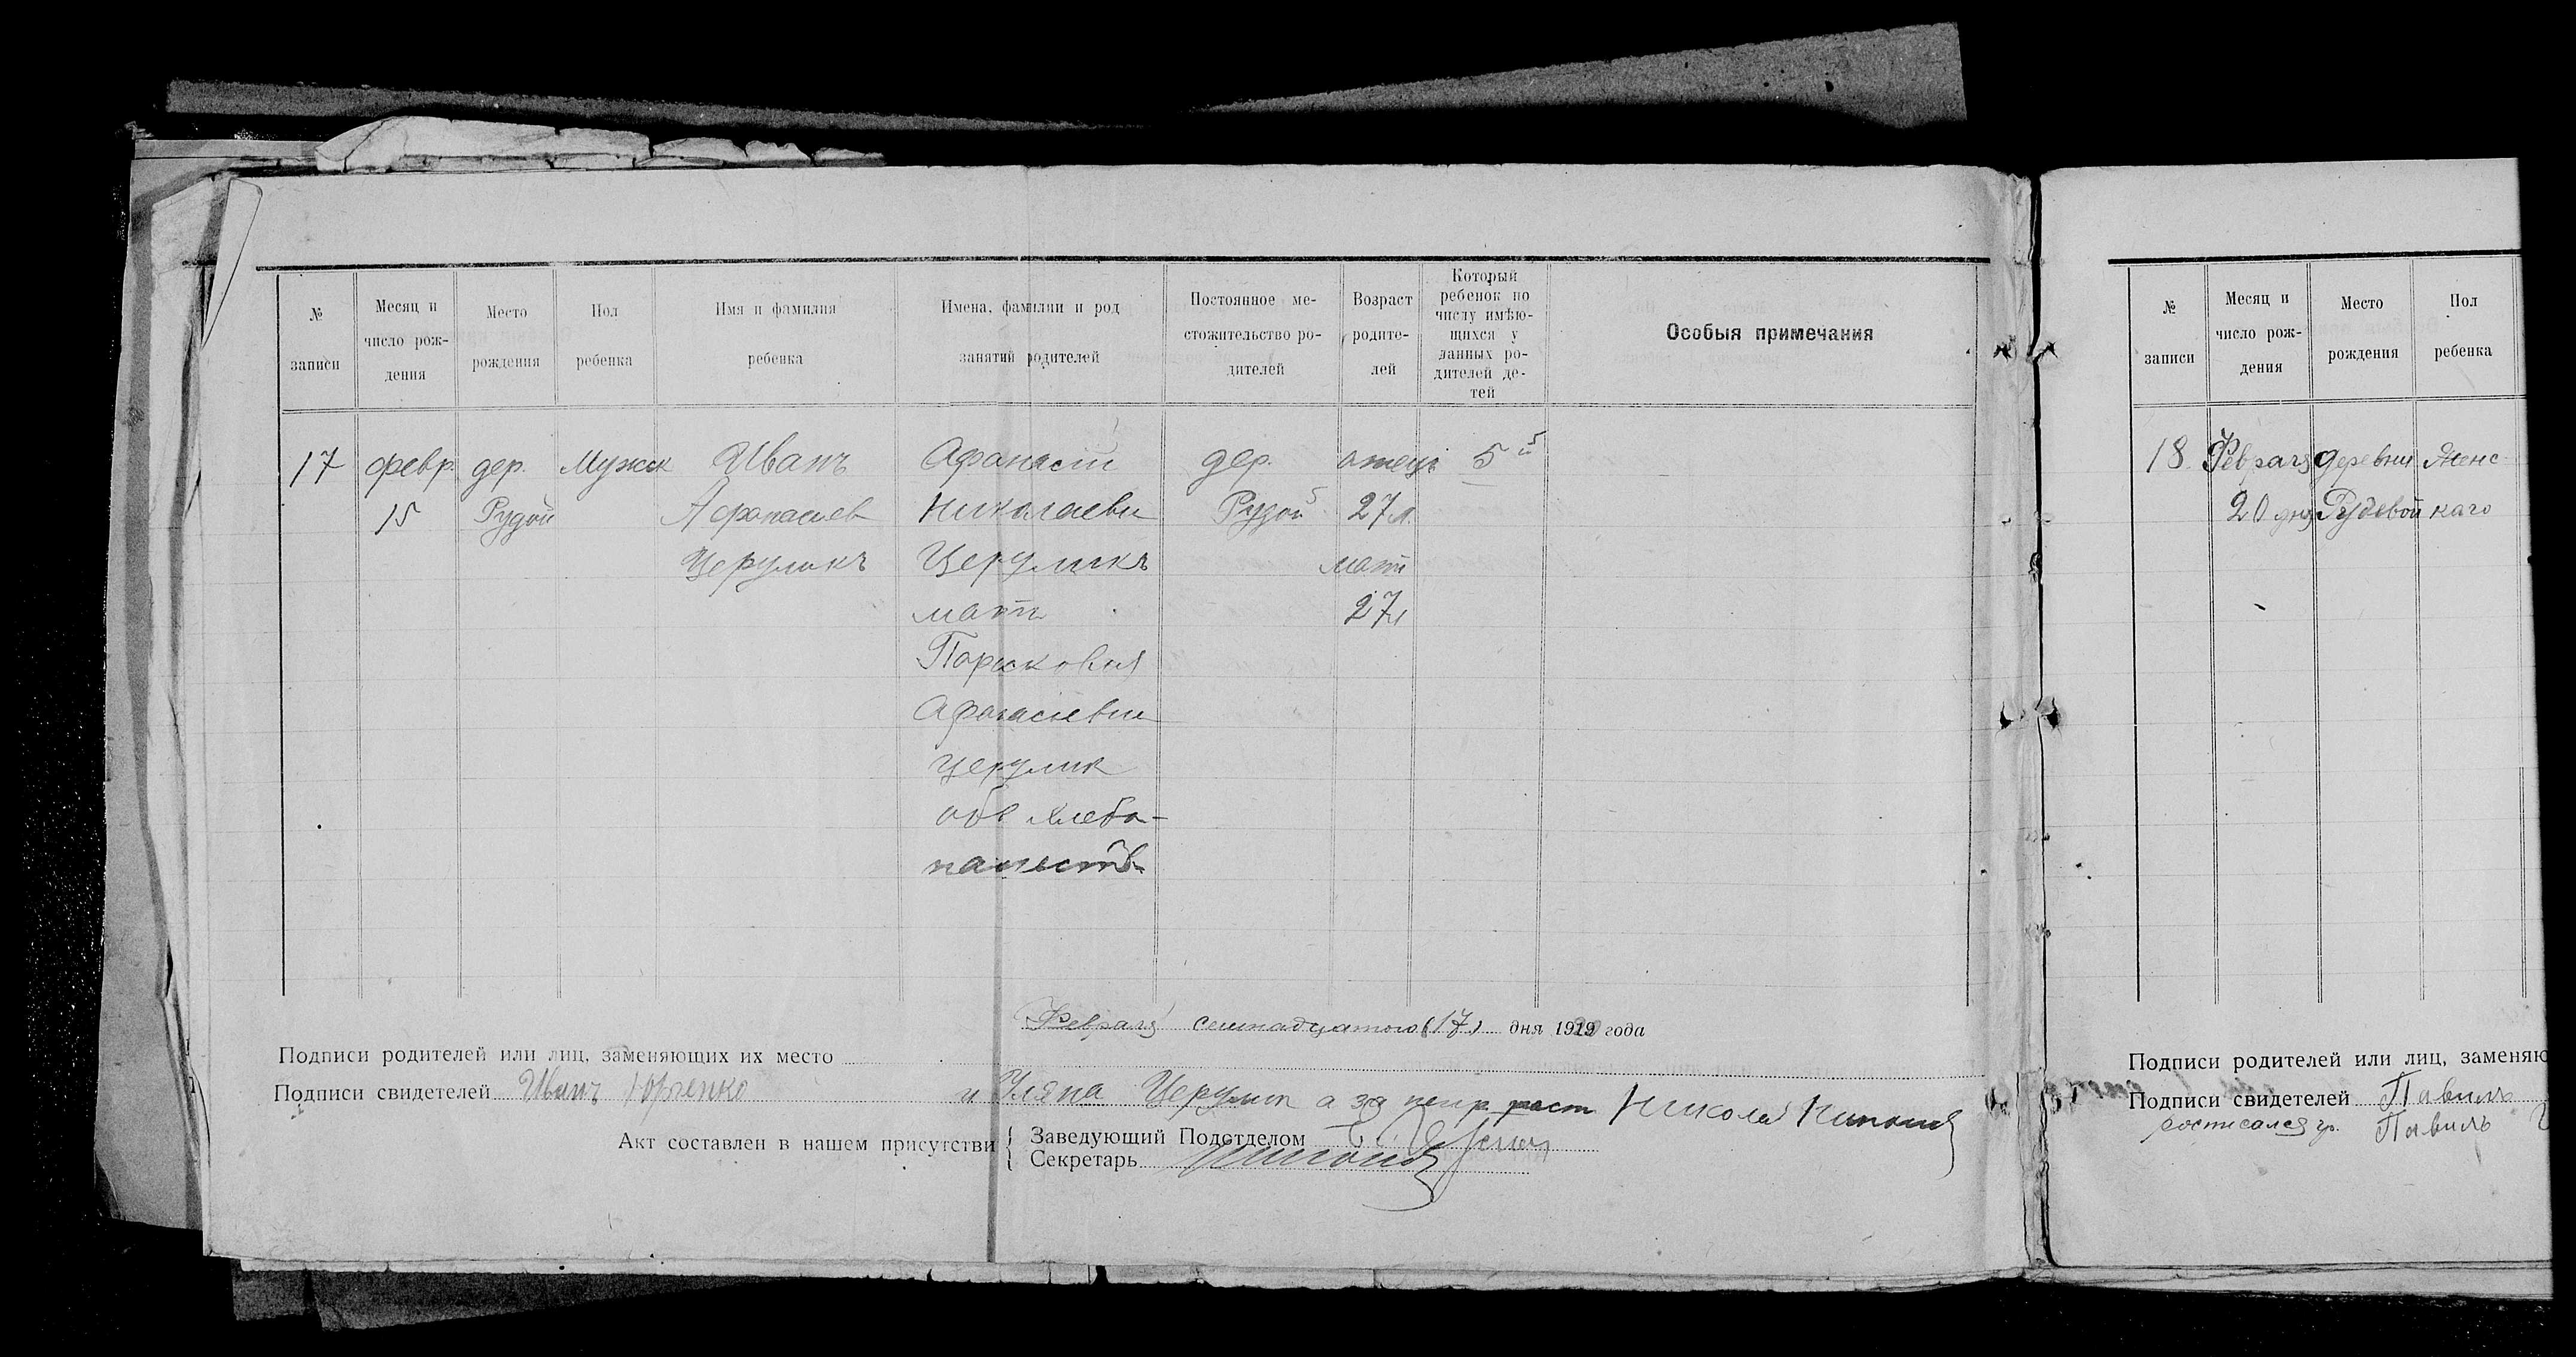 № записи
Месяц и число рождения
Место рождения
Пол ребенка
Имя и фамилия ребенка
Имена, фамилии и род занятий родителей
Постоянное местожительство родителей
Возраст родителей
Который ребенок по числу имѣющихся у данных родителей детей
Особыя примечания
17 февр. дер. Мужск Иванъ Афанасий дер. отецъ 5й
15 Рудой Афанасиев Николаевич Рудой 27 л.
Церуликъ Церуликъ мать
мать 27 л
Парасковия
Афанасиевна
Церулик
оба хлебо-
пашеств
Февраля семнадцатого (17) дня 1920 года
Подписи родителей или лиц, заменяющих их место
Подписи свидетелей Иванъ Юрченко и Уляна Церулик а за негр. расп Николай
Акт составлен в нашем присутстви
Заведующий Подотделом
Секретарь
№ записи
Месяц и число рождения
Место рождения
Пол ребенка
18 Февраля деревни Женс-
20 дня Рудовой каго
Подписи родителей или лиц, заменяю
Подписи свидетелей Павилъ
росписался гр. Павилъ